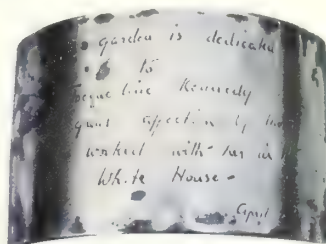 garden is dedicated
to
Jacqueline Kennedy
great affection by those
worked with her in
White House -
April